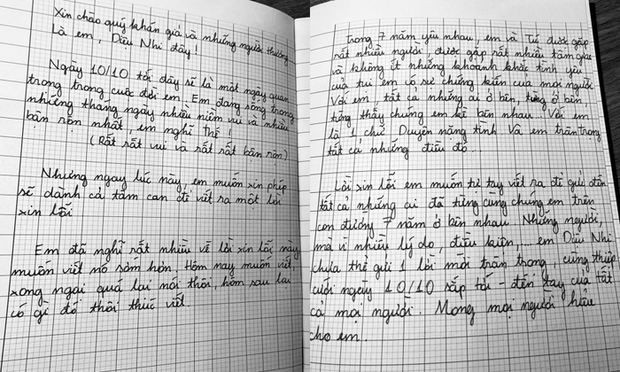 Xin chào quý khán giả và những người thương
Là em, Diệu Nhi đây!
Ngày 10/10 tới đây sẽ là một ngày quan
trọng trong cuộc đời em. Em đang sống trong
những tháng ngày nhiều niềm vui và nhiều
bận rộn nhất, em nghĩ thế!
(Rất rất vui và rất rất bận rộn)
Nhưng ngay lúc này, em muốn xin phép
sẽ dành cả tâm can để viết ra một lời
xin lỗi
Em đã nghĩ rất nhiều về lời xin lỗi này
muốn viết nó sớm hơn. Hôm nay muốn viết,
xong ngại quá lại nói thôi, hôm sau lại
có gì đó thôi thúc viết
Trong 7 năm yêu nhau, em và Tú được gặp
rất nhiều người, được gặp rất nhiều tấm gương
và không ít những khoảnh khắc tình yêu
của tụi em có sự chứng kiến của mọi người
Với em, tất cả những ai ở bên, từng ở bên
từng thấy chúng em kề bên nhau. Với em
là 1 chữ Duyên nặng tình Và em trân trọng
tất cả những điều đó.
Lời xin lỗi em muốn tự tay viết ra để gửi đến
tất cả những ai đã từng cùng chúng em trên
con đường 7 năm ở bên nhau. Những người,
mà vì nhiều lý do, điều kiện, em Diệu Nhi
chưa thể gửi 1 lời mời trân trọng cùng thiệp
cưới ngày 10/10 sắp tới - đến tay của tất
cả mọi người. Mong mọi người hiểu
cho em.